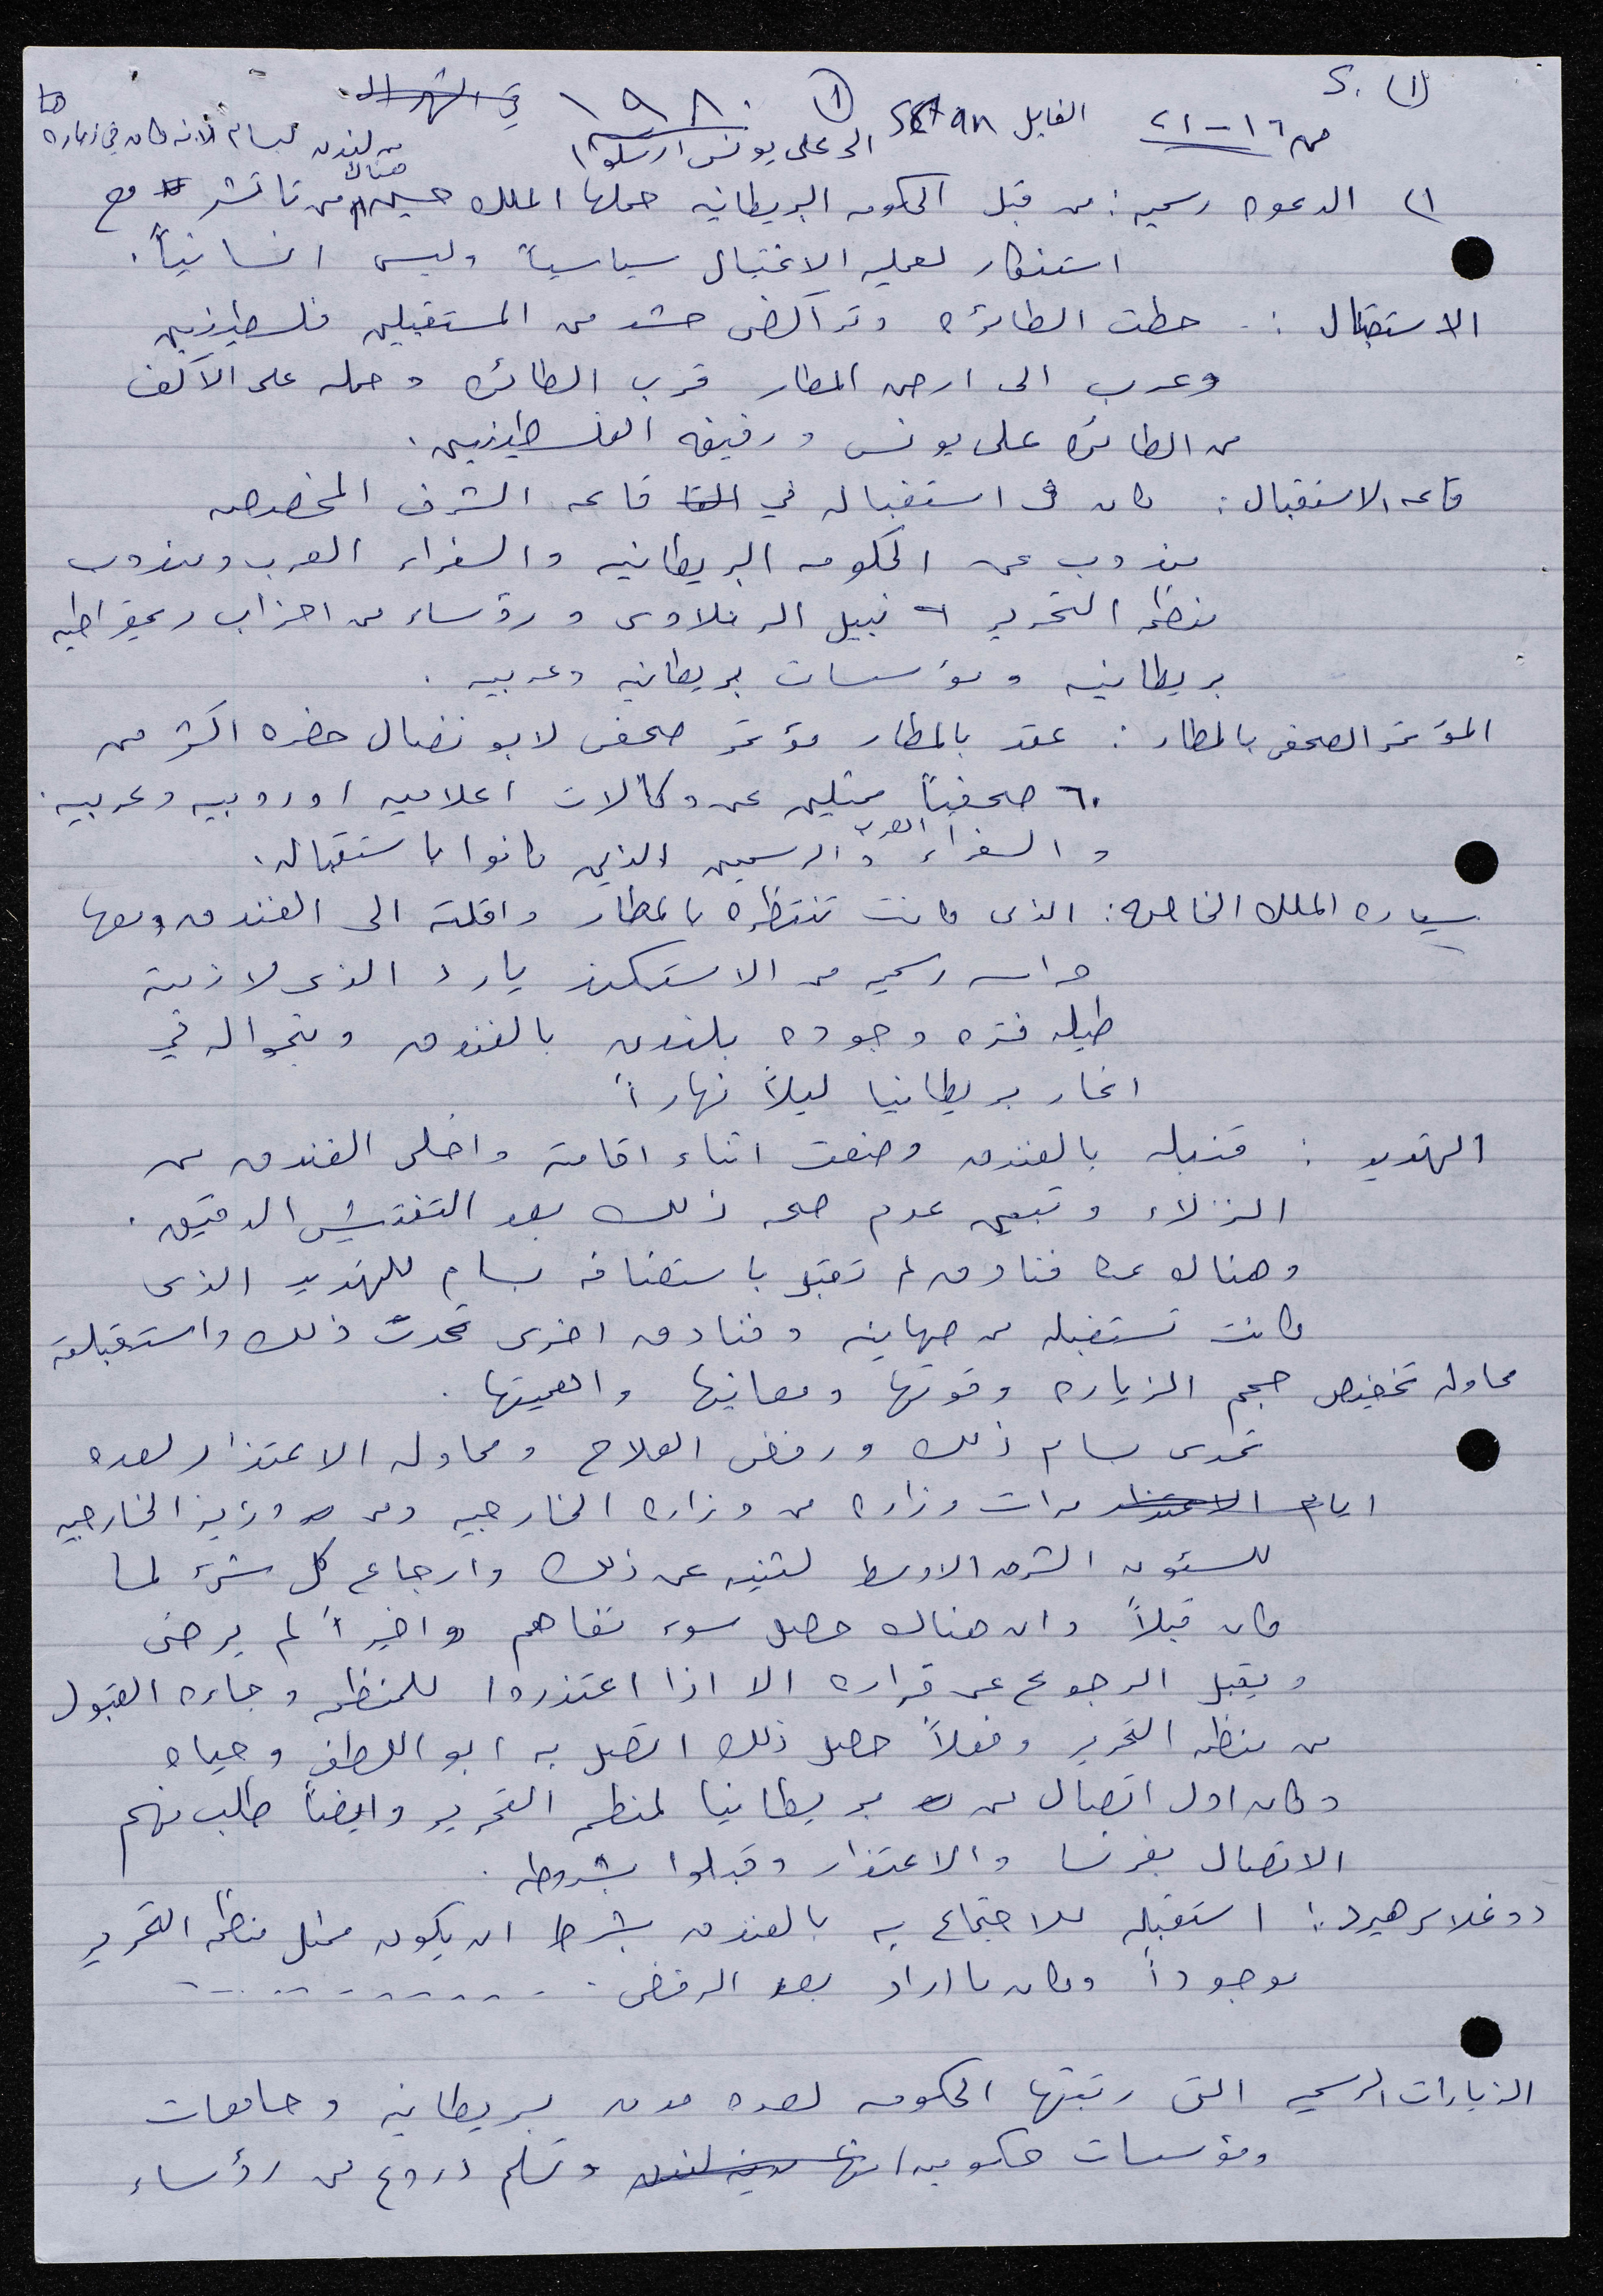 (١) .S
ص ١٦ - ٢١ الفايل ① ١٩٨٠
الى على يونس ارسلوا
من لندن لبسام لانه كان في زياره هنا
١) الدعوه رسميه: من قبل الحكومه البريطانيه حملها الملك حسين هناك من تاتشر مع
استنكار لعمليه الاغتيال سياسياً وليس انسانياً.
الاستقبال :- حطت الطائره وتراكض حشد من المستقبلين فلسطينيين
وعرب الى ارض المطار قرب الطائره وحمله على الاكف
من الطائره على يونس ورفيقه الفلسطينيين.
قاعه الاستقبال: كان في استقباله في قاعه الشرف المخصصه
مندوب عن الحكومه البريطانيه والسفراء العرب ومندوب
منظمة التحرير نبيل الرملاوى ورؤساء من احزاب ديمقراطيه
بريطانيه ومؤسسات بريطانيه وعربيه .
المؤتمر الصحفى بالمطار: عقد بالمطار مؤتمر صحفى لابو نضال حضره اكثر من
٦٠ صحفياً ممثلين عن وكالات اعلاميه اوروبيه وعربيه.
والسفراء العرب والرسميين الذين كانوا باستقباله.
سياره الملك الخاصه: الذى كانت تنتظره بالمطار واقلته الى الفندق ومعها
حراسه رسميه من الاستكلند يارد الذى لازمته
طيله فتره وجوده بلندن بالفندق وتجواله في
انحاء بريطانيا ليلاً نهاراً
التهديد : قنبله بالفندق وضعت اثناء اقامته واخلى الفندق من
النزلاء وتبين عدم صحه ذلك بعد التفتيش الدقيق.
وهناك عده فنادق لم تقبل باستضافه بسام للتهديد الذى
كانت تستقبله من صهاينه وفنادق اخرى تحدت ذلك واستقبلته
محاوله تخفيض حجم الزياره وقوتها ومعانيها واهميتها.
تحدى بسام ذلك ورفض العلاج ومحاوله الاعتذار لعده
ايام مرات وزاره من وزاره الخارجيه ومن وزير الخارجيه
للشئون الشرق الاوسط لتثنيه عن ذلك وارجاع كل شىء لما
كان قبلاً وان هناك حصل سوء تفاهم واخيراً لم يرضى
ويقبل الرجوع عن قراره الا اذا اعتذروا للمنظمه وجاءه القبول
من منظمه التحرير وفعلاً حصل ذلك اتصل به ابو اللطف وحياه
وكان اول اتصال من بريطانيا لمنظمه التحرير وايضاً طلب منهم
الاتصال بفرنسا والاعتذار وقبلوا بشروطه.
دوغلاس هيرد: استقبله للاجتماع به بالفندق بشرط ان يكون ممثل منظمة التحرير
موجوداً وكان ما اراد بعد الرفض. - - - - - - - - -
الزيارات الرسميه التى رتبتها الحكومه لعده مدن بريطانيه وجامعات
ومؤسسات حكوميه وتسلم دروع من رؤساء